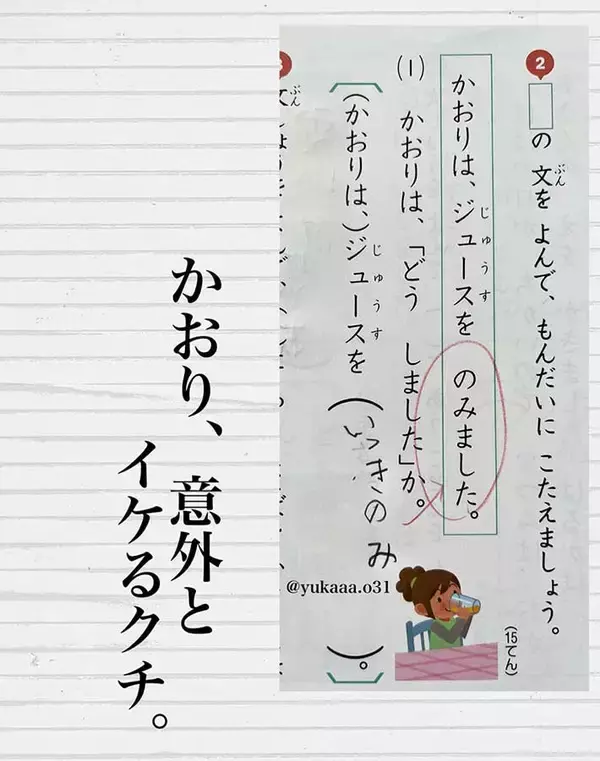 2
□の 文を よんで、もんだいに こたえましょう。
ぶん
(15てん)
かおりは、ジュースを のみました。
じゅうす
(1) かおりは、「どう しました」か。
(かおりは、)ジュースを (いっきのみ)。
じゅうす
@yukaaa.o31
かおり、意外と
イケるクチ。